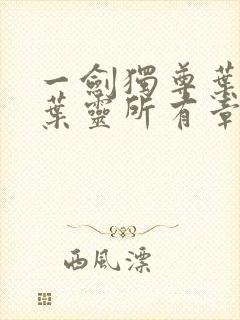 一劍獨尊葉
葉靈所有章
西風漂